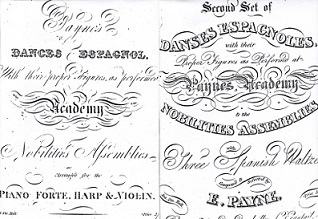 Payne's
DANCES ESPAGNOL,
With their proper Figures, as performed
Academy
Nobilities Assemblies
Arranged for the
PIANO FORTE, HARP & VIOLIN,
Second Set of
DANSES ESPAGNOLES,
with their
Proper Figures as Performed at
Paynes Academy
& the
NOBILITIES ASSEMBLIES
with
Three Spanish Waltzes
Composed &
by
E. PAYNE.